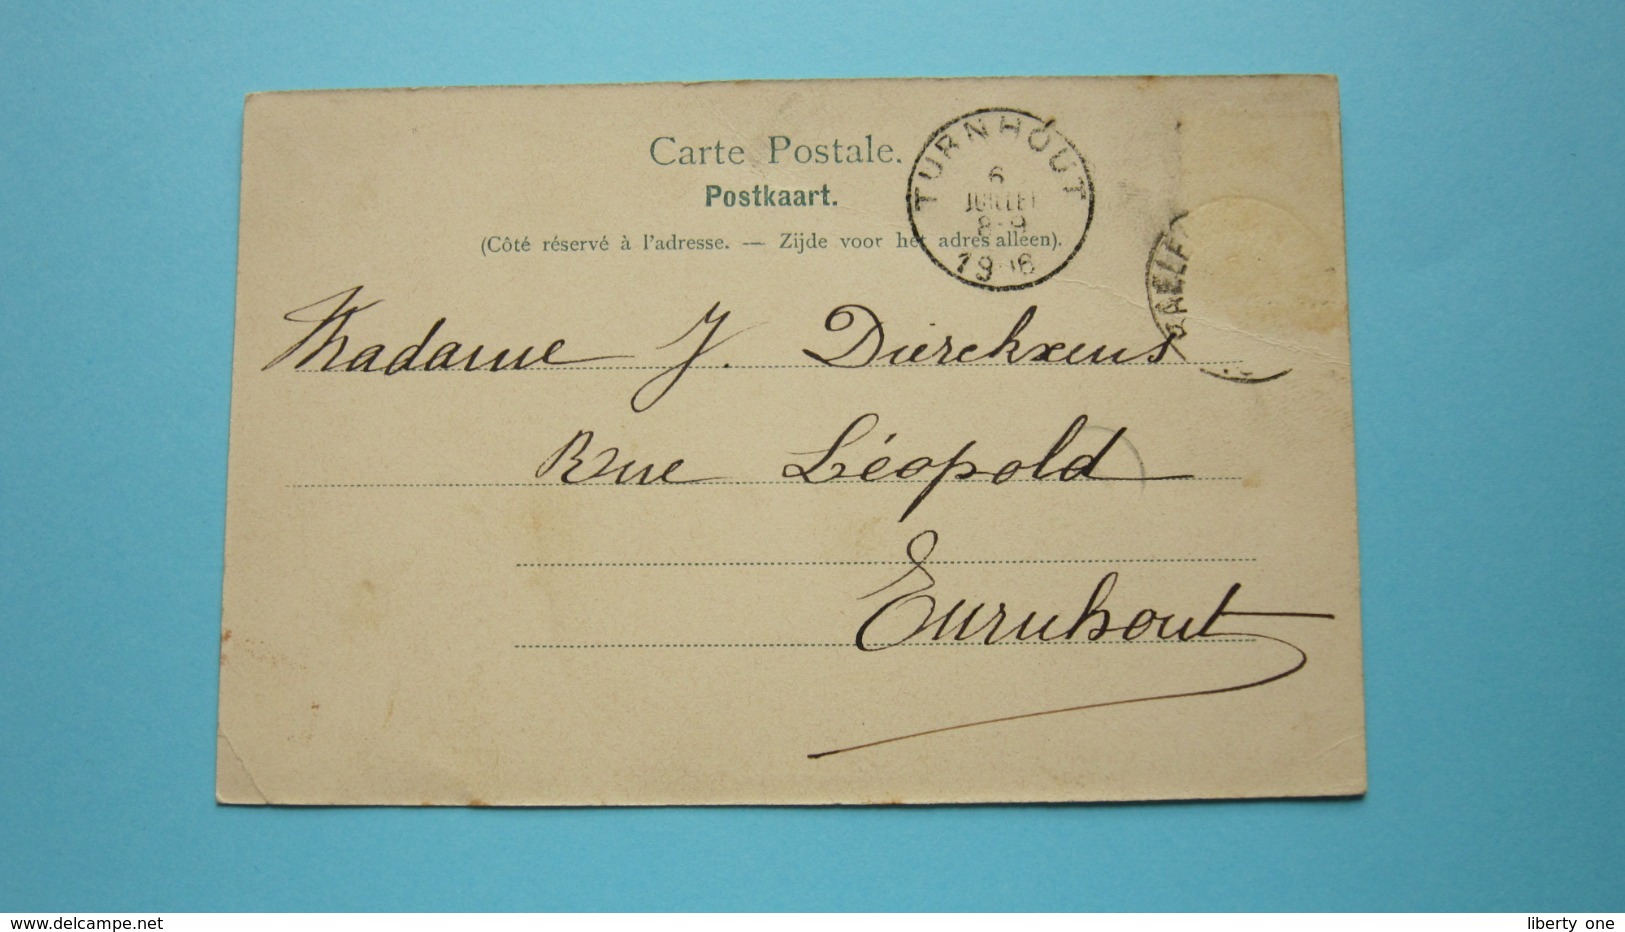 Carte Postale.
Postkaart.
(Côté réservé à l'adresse. — Zijde voor het adres alleen).
TURNHOUT
6
JUILLET
8-9
Madame J. Dierckxens
Rue Léopold
Turnhout
delcampe.net
liberty one